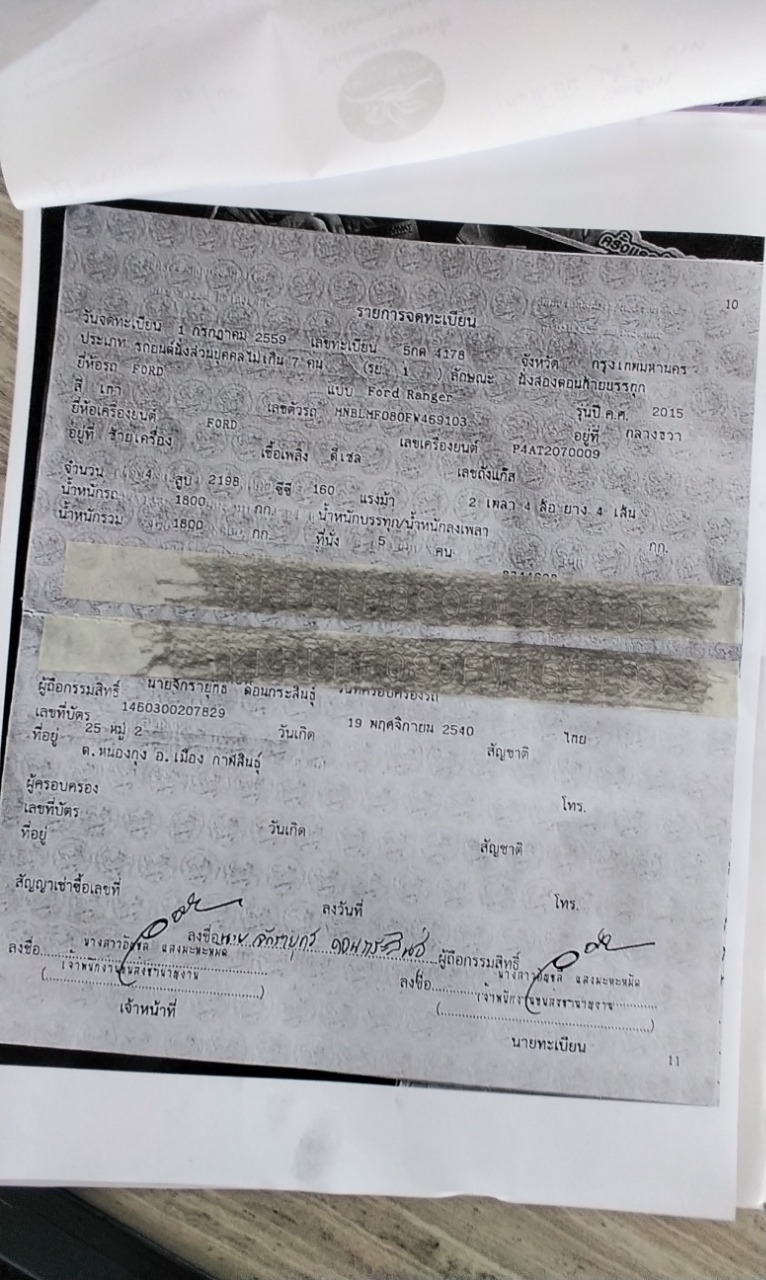 10
รายการจดทะเบียน
วันจดทะเบียน 1 กรกฎาคม 2559 เลขทะเบียน 5กด 4178 จังหวัด กรุงเทพมหานคร
ประเภท รถยนต์นั่งส่วนบุคคลไม่เกิน 7 คน (รย. 1 ) ลักษณะ นั่งสองตอนท้ายบรรทุก
ยี่ห้อรถ FORD แบบ Ford Ranger รุ่นปี ค.ศ. 2015
สี เทา เลขตัวรถ MNBLMF080FW469103 อยู่ที่ กลางขวา
ยี่ห้อเครื่องยนต์ FORD เลขเครื่องยนต์ P4AT2070009
อยู่ที่ ซ้ายเครื่อง เชื้อเพลิง ดีเซล เลขถังแก๊ส
จำนวน 4 สูบ 2198 ซีซี 160 แรงม้า 2 เพลา 4 ล้อ ยาง 4 เส้น
น้ำหนักรถ 1800 กก. น้ำหนักบรรทุก/น้ำหนักลงเพลา กก.
น้ำหนักรวม 1800 กก. ที่นั่ง 5 คน
ผู้ถือกรรมสิทธิ์ นายจักรายุทธ ดอนกระสินธุ์ วันที่ครอบครองรถ
เลขที่บัตร 1460300207829 วันเกิด 19 พฤศจิกายน 2540 สัญชาติ ไทย
ที่อยู่ 25 หมู่ 2
ต.หนองกุง อ.เมือง กาฬสินธุ์
ผู้ครอบครอง โทร.
เลขที่บัตร วันเกิด สัญชาติ
ที่อยู่
สัญญาเช่าซื้อเลขที่ ลงวันที่ โทร.
ลงชื่อ ผู้ถือกรรมสิทธิ์
ลงชื่อ นางสาว แสงมะหะหมัด
เจ้าพนักงานขนส่งชำนาญงาน
เจ้าหน้าที่
ลงชื่อ นางสาว แสงมะหะหมัด
เจ้าพนักงานขนส่งชำนาญงาน
นายทะเบียน
11